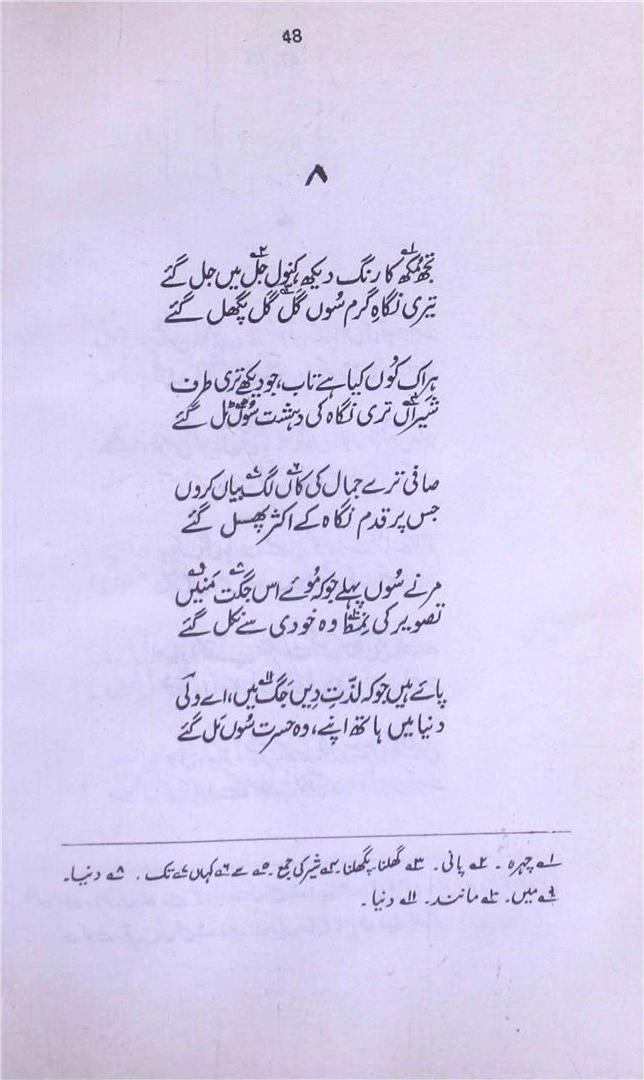 48
۸
تجھ مُکھ۱ کا رنگ دیکھ کنول جَل۲ میں جل گئے
تیری نگاہِ گرم سُوں گل۳ گل پگھل گئے
ہر اک کوں کیا ہے تاب، جو دیکھے تری طرف
شیراں۴ تری نگاہ کی دہشت سُوں۵ ٹل گئے
صافی ترے جمال کی کاں۶ لگ۷ بیاں کروں
جس پر قدم نگاہ کے اکثر پھسل گئے
مرنے سُوں پہلے جو کہ مُوئے اس جگت۸ مَنیں۹
تصویر کی نمط۱۰ وہ خودی سے نکل گئے
پائے ہیں جو کہ لذّتِ دیں جَگ۱۱ میں، اے ولی
دنیا میں ہاتھ اپنے، وہ حسرت سُوں مَل گئے
۱؎ چہرہ ۔ ۲؎ پانی ۔ ۳؎ گھلنا، پگھلنا ۔ ۴؎ شیر کی جمع ۔ ۵؎ سے ۶؎ کہاں ۷؎ تک ۔ ۸؎ دنیا ۔
۹؎ میں ۔ ۱۰؎ مانند ۔ ۱۱؎ دنیا ۔